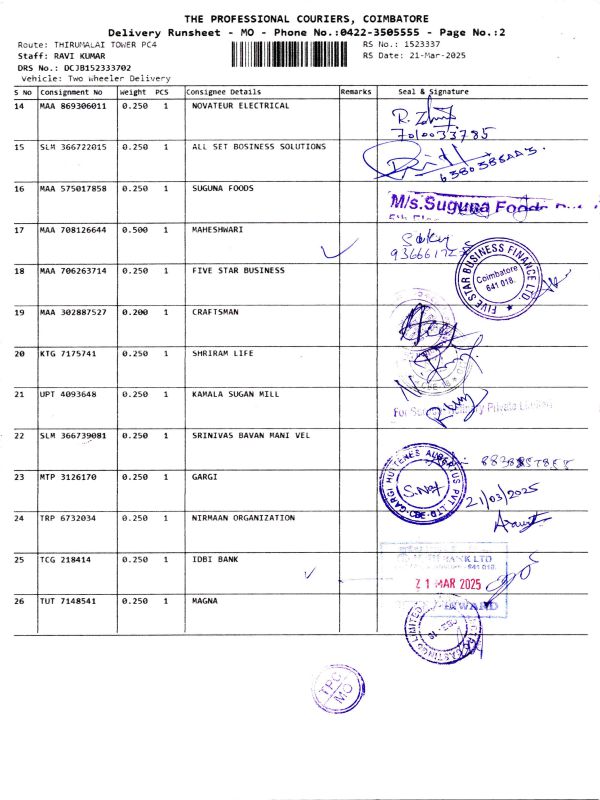 THE PROFESSIONAL COURIERS, COIMBATORE
Delivery Runsheet - MO - Phone No.:0422-3505555 - Page No.:2
Route: THIRUMALAI TOWER PC4
RS No.: 1523337
Staff: RAVI KUMAR
RS Date: 21-Mar-2025
DRS No.: DCJB152333702
Vehicle: Two Wheeler Delivery
S No Consignment No Weight PCS Consignee Details Remarks Seal & Signature
14 MAA 869306011 0.250 1 NOVATEUR ELECTRICAL
7010033785
15 SLM 366722015 0.250 1 ALL SET BUSINESS SOLUTIONS
16 MAA 575017858 0.250 1 SUGUNA FOODS
M/s.Suguna Foods
17 MAA 708126644 0.500 1 MAHESHWARI
18 MAA 706263714 0.250 1 FIVE STAR BUSINESS
FIVE STAR BUSINESS FINANCE LTD.
Coimbatore
641 018.
19 MAA 302887527 0.200 1 CRAFTSMAN
20 KTG 7175741 0.250 1 SHRIRAM LIFE
21 UPT 4093648 0.250 1 KAMALA SUGAN MILL
For Private Limited
22 SLM 366739081 0.250 1 SRINIVAS BAVAN MANI VEL
23 MTP 3126170 0.250 1 GARGI
GARGI HUTTENES ALBERTUS PVT. LTD.
CBE
21/03/2025
24 TRP 6732034 0.250 1 NIRMAAN ORGANIZATION
25 TCG 218414 0.250 1 IDBI BANK
BANK LTD
641 018.
21 MAR 2025
INWARD
26 TUT 7148541 0.250 1 MAGNA
TPC
MO